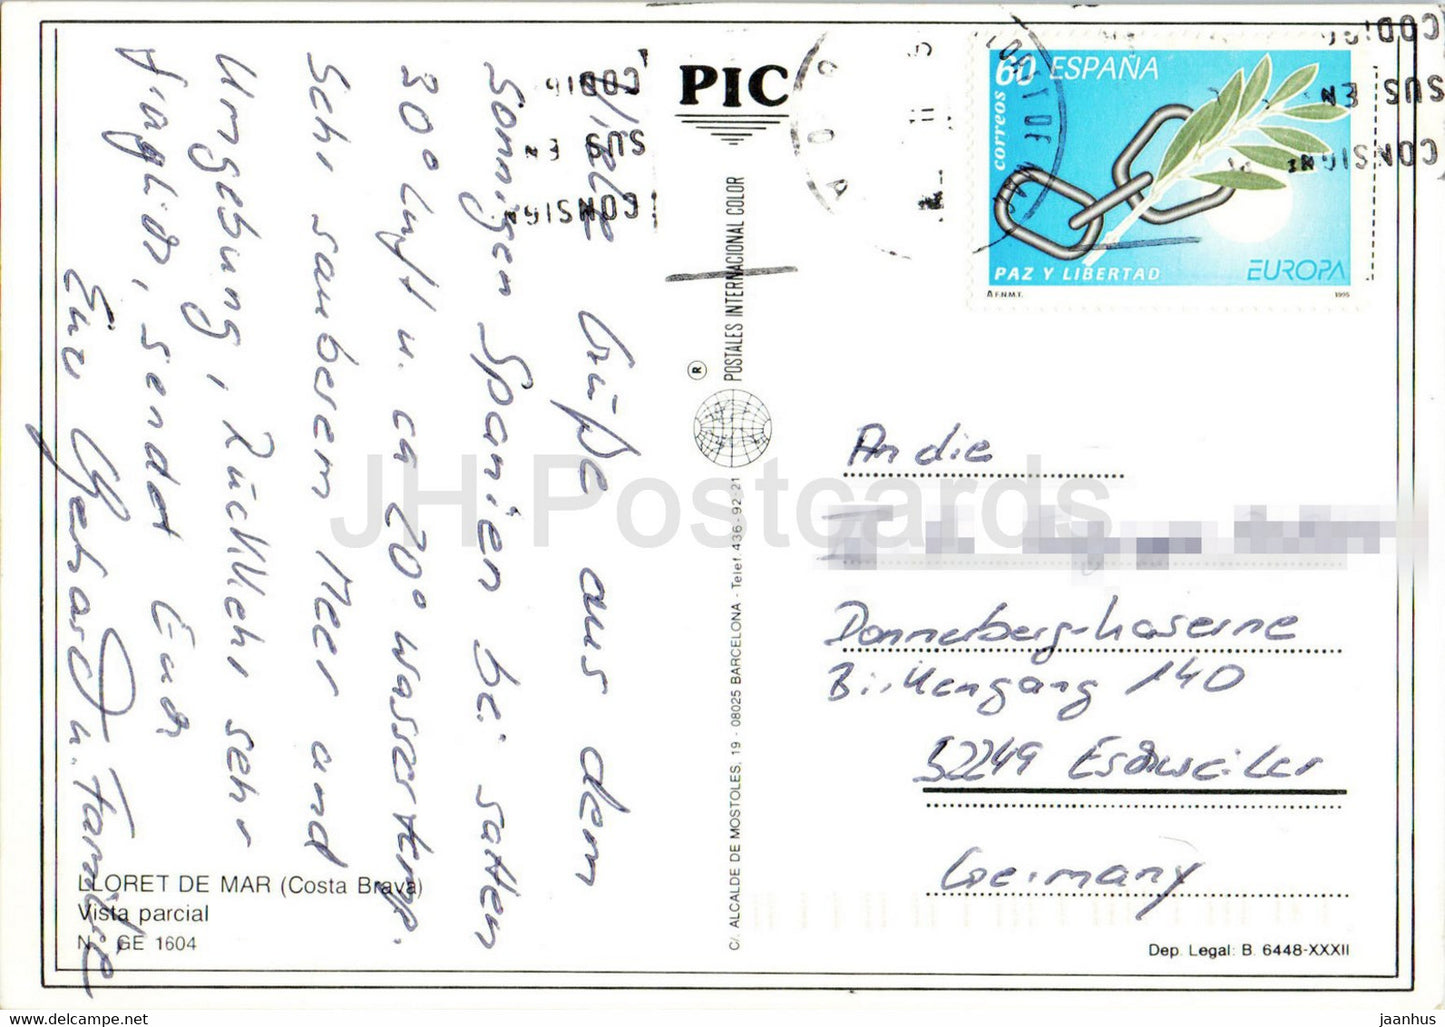 Viele Grüße aus dem
Sonnigen Spanien bei satten
30° Luft u. ca 20° Wassertemp.
Sehr sauberem Meer und
Umgebung, Rückkehr sehr
fraglich, sendet Euch
Eur Gerhard u. Familie
LLORET DE MAR (Costa Brava)
Vista parcial
N. GE 1604
PIC
POSTALES INTERNACIONAL COLOR
®
C/. ALCALDE DE MOSTOLES, 19 - 08025 BARCELONA - Telef. 436-92-21
CODIG
SUS EN
CONSIGN
60 ESPAÑA
correos
PAZ Y LIBERTAD
EUROPA
F.N.M.T.
1995
CODIGO
SUS EN
CONSIGN
Andie
Donnerberg-kaserne
Birkengang 140
52249 Eschweiler
Germany
Dep. Legal: B. 6448-XXXII
JH Postcards
www.delcampe.net
jaanhus